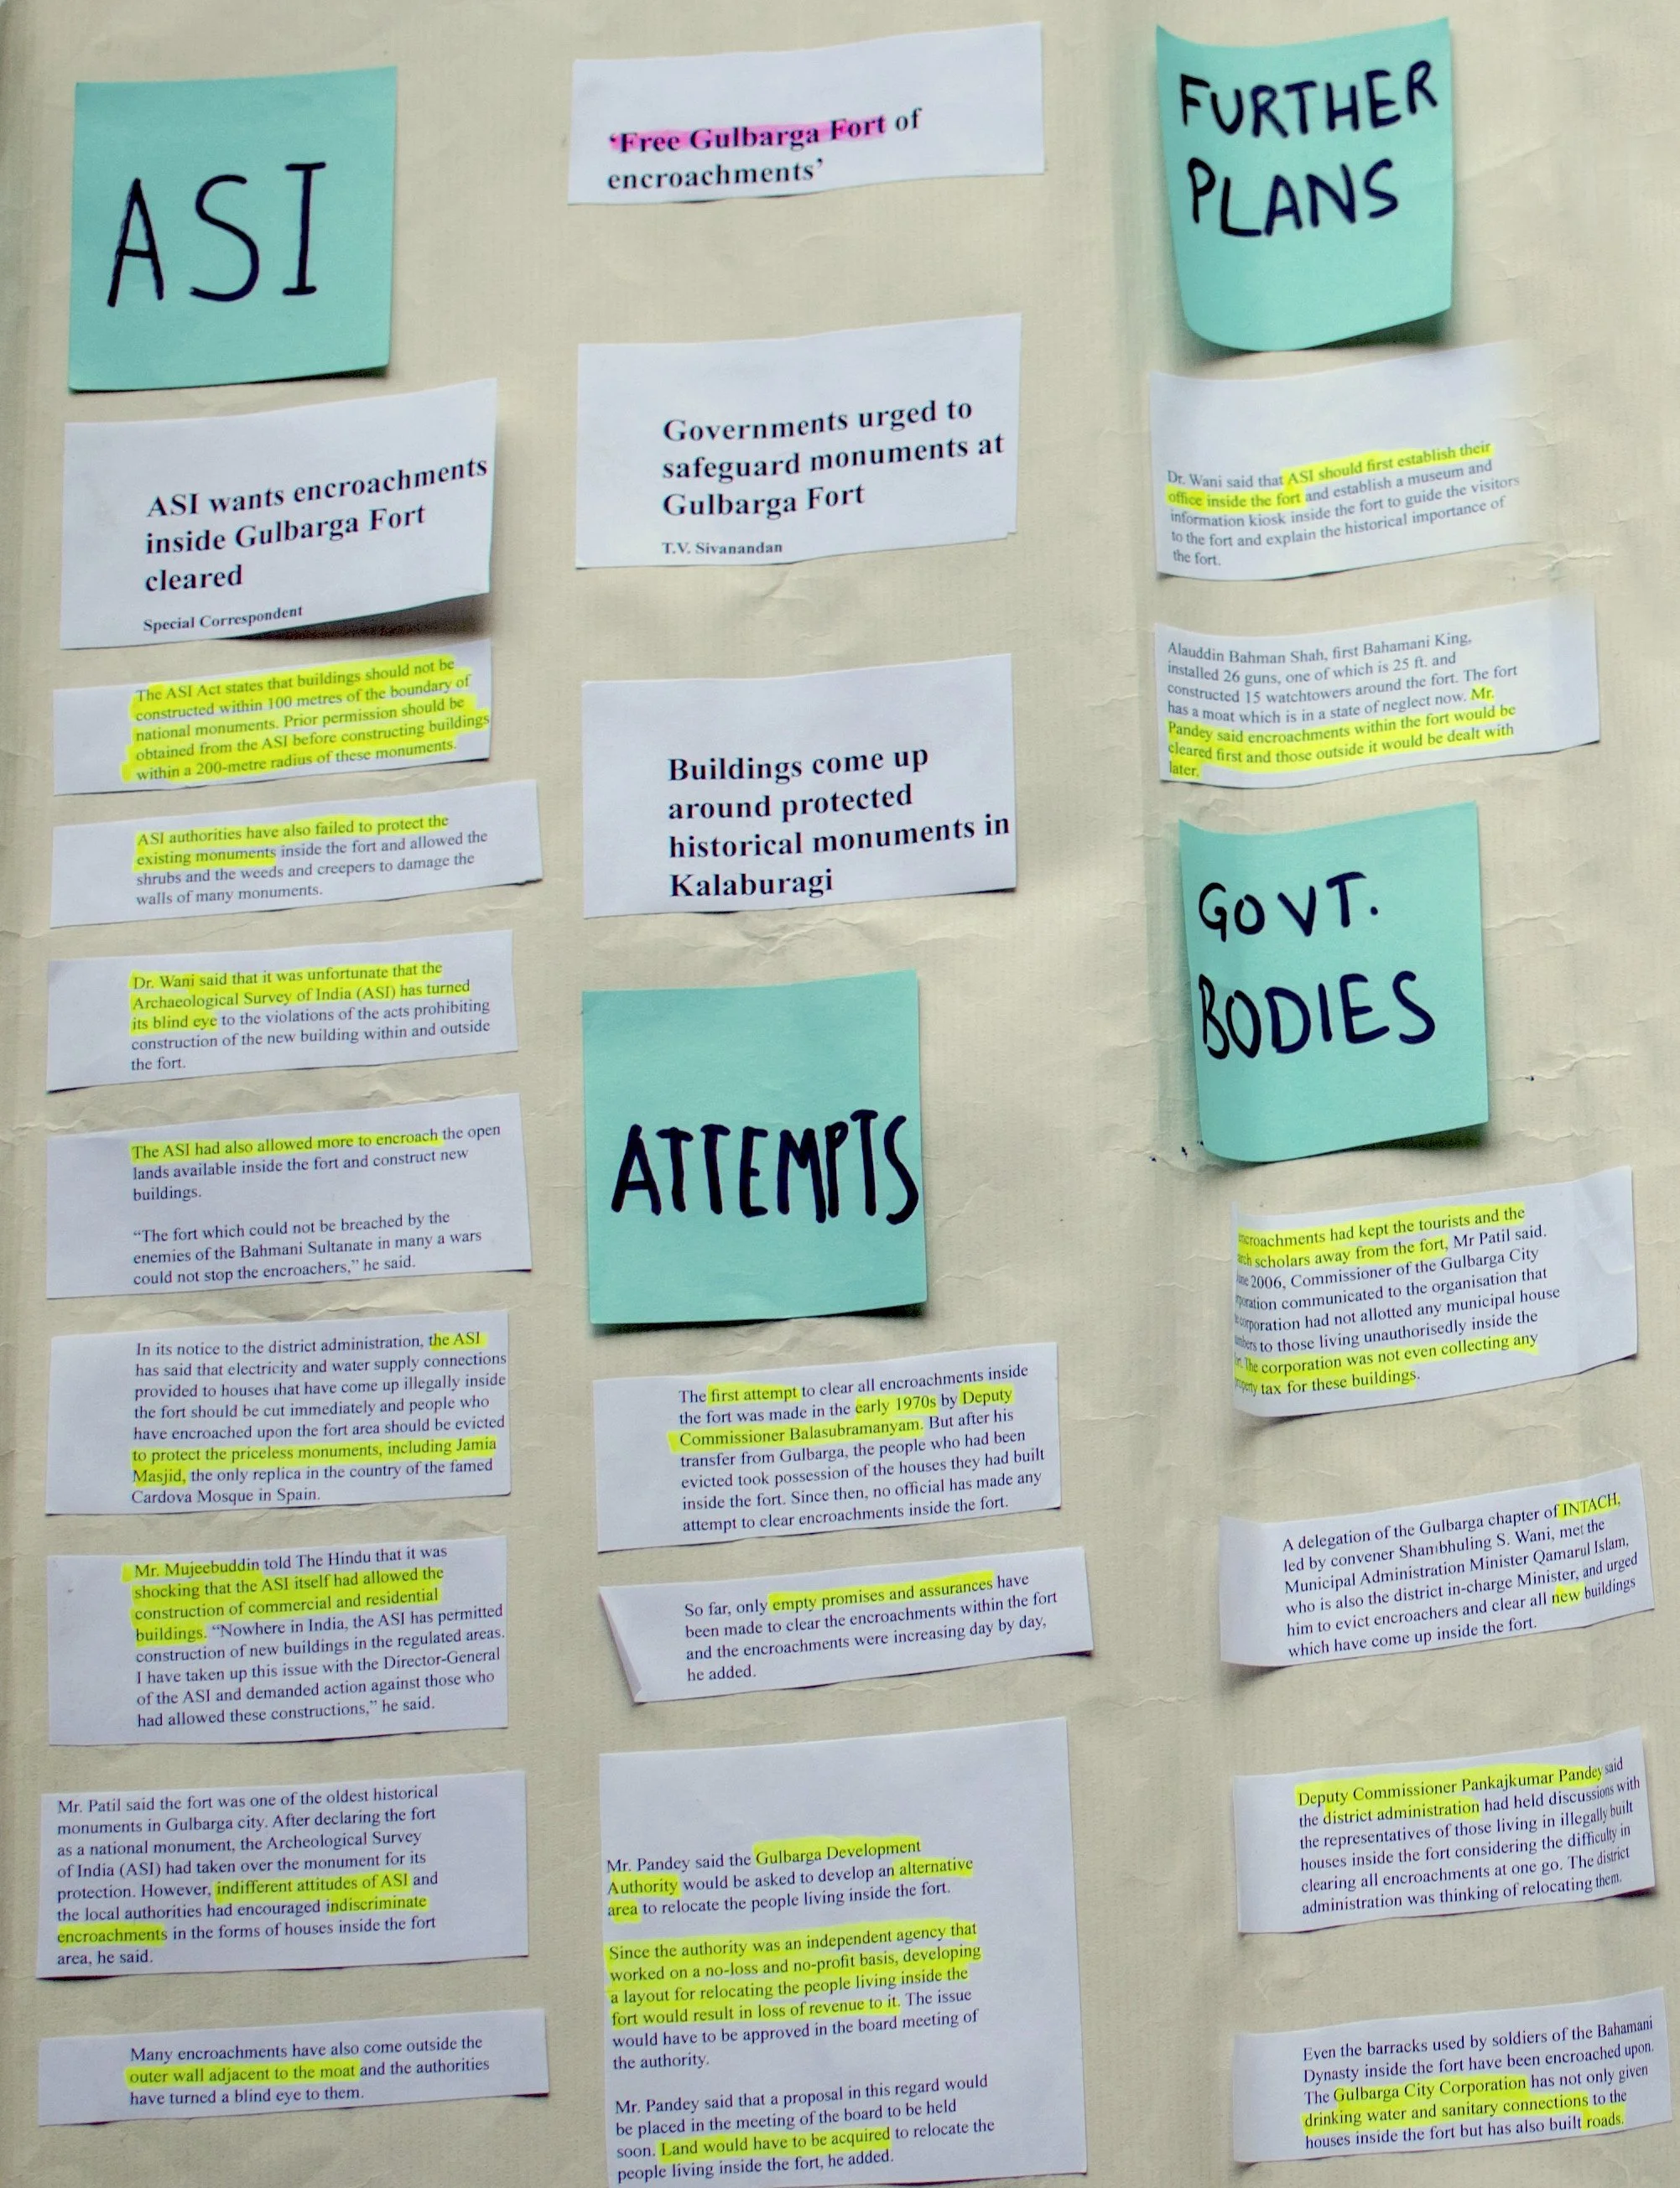 ASI
ASI wants encroachments
inside Gulbarga Fort
cleared
Special Correspondent
The ASI Act states that buildings should not be
constructed within 100 metres of the boundary of
national monuments. Prior permission should be
obtained from the ASI before constructing buildings
within a 200-metre radius of these monuments.
ASI authorities have also failed to protect the
existing monuments inside the fort and allowed the
shrubs and the weeds and creepers to damage the
walls of many monuments.
Dr. Wani said that it was unfortunate that the
Archaeological Survey of India (ASI) has turned
its blind eye to the violations of the acts prohibiting
construction of the new building within and outside
the fort.
The ASI had also allowed more to encroach the open
lands available inside the fort and construct new
buildings.
“The fort which could not be breached by the
enemies of the Bahmani Sultanate in many a wars
could not stop the encroachers,” he said.
In its notice to the district administration, the ASI
has said that electricity and water supply connections
provided to houses that have come up illegally inside
the fort should be cut immediately and people who
have encroached upon the fort area should be evicted
to protect the priceless monuments, including Jamia
Masjid, the only replica in the country of the famed
Cardova Mosque in Spain.
Mr. Mujeebuddin told The Hindu that it was
shocking that the ASI itself had allowed the
construction of commercial and residential
buildings. “Nowhere in India, the ASI has permitted
construction of new buildings in the regulated areas.
I have taken up this issue with the Director-General
of the ASI and demanded action against those who
had allowed these constructions,” he said.
Mr. Patil said the fort was one of the oldest historical
monuments in Gulbarga city. After declaring the fort
as a national monument, the Archeological Survey
of India (ASI) had taken over the monument for its
protection. However, indifferent attitudes of ASI and
the local authorities had encouraged indiscriminate
encroachments in the forms of houses inside the fort
area, he said.
Many encroachments have also come outside the
outer wall adjacent to the moat and the authorities
have turned a blind eye to them.
‘Free Gulbarga Fort of
encroachments’
Governments urged to
safeguard monuments at
Gulbarga Fort
T.V. Sivanandan
Buildings come up
around protected
historical monuments in
Kalaburagi
ATTEMPTS
The first attempt to clear all encroachments inside
the fort was made in the early 1970s by Deputy
Commissioner Balasubramanyam. But after his
transfer from Gulbarga, the people who had been
evicted took possession of the houses they had built
inside the fort. Since then, no official has made any
attempt to clear encroachments inside the fort.
So far, only empty promises and assurances have
been made to clear the encroachments within the fort
and the encroachments were increasing day by day,
he added.
Mr. Pandey said the Gulbarga Development
Authority would be asked to develop an alternative
area to relocate the people living inside the fort.
Since the authority was an independent agency that
worked on a no-loss and no-profit basis, developing
a layout for relocating the people living inside the
fort would result in loss of revenue to it. The issue
would have to be approved in the board meeting of
the authority.
Mr. Pandey said that a proposal in this regard would
be placed in the meeting of the board to be held
soon. Land would have to be acquired to relocate the
people living inside the fort, he added.
FURTHER
PLANS
Dr. Wani said that ASI should first establish their
office inside the fort and establish a museum and
information kiosk inside the fort to guide the visitors
to the fort and explain the historical importance of
the fort.
Alauddin Bahman Shah, first Bahamani King,
installed 26 guns, one of which is 25 ft. and
constructed 15 watchtowers around the fort. The fort
has a moat which is in a state of neglect now. Mr.
Pandey said encroachments within the fort would be
cleared first and those outside it would be dealt with
later.
GOVT.
BODIES
croachments had kept the tourists and the
scholars away from the fort, Mr Patil said.
2006, Commissioner of the Gulbarga City
communicated to the organisation that
corporation had not allotted any municipal house
to those living unauthorisedly inside the
The corporation was not even collecting any
tax for these buildings.
A delegation of the Gulbarga chapter of INTACH,
led by convener Shambhuling S. Wani, met the
Municipal Administration Minister Qamarul Islam,
who is also the district in-charge Minister, and urged
him to evict encroachers and clear all new buildings
which have come up inside the fort.
Deputy Commissioner Pankajkumar Pandey said
the district administration had held discussions with
the representatives of those living in illegally built
houses inside the fort considering the difficulty in
clearing all encroachments at one go. The district
administration was thinking of relocating them.
Even the barracks used by soldiers of the Bahamani
Dynasty inside the fort have been encroached upon.
The Gulbarga City Corporation has not only given
drinking water and sanitary connections to the
houses inside the fort but has also built roads.